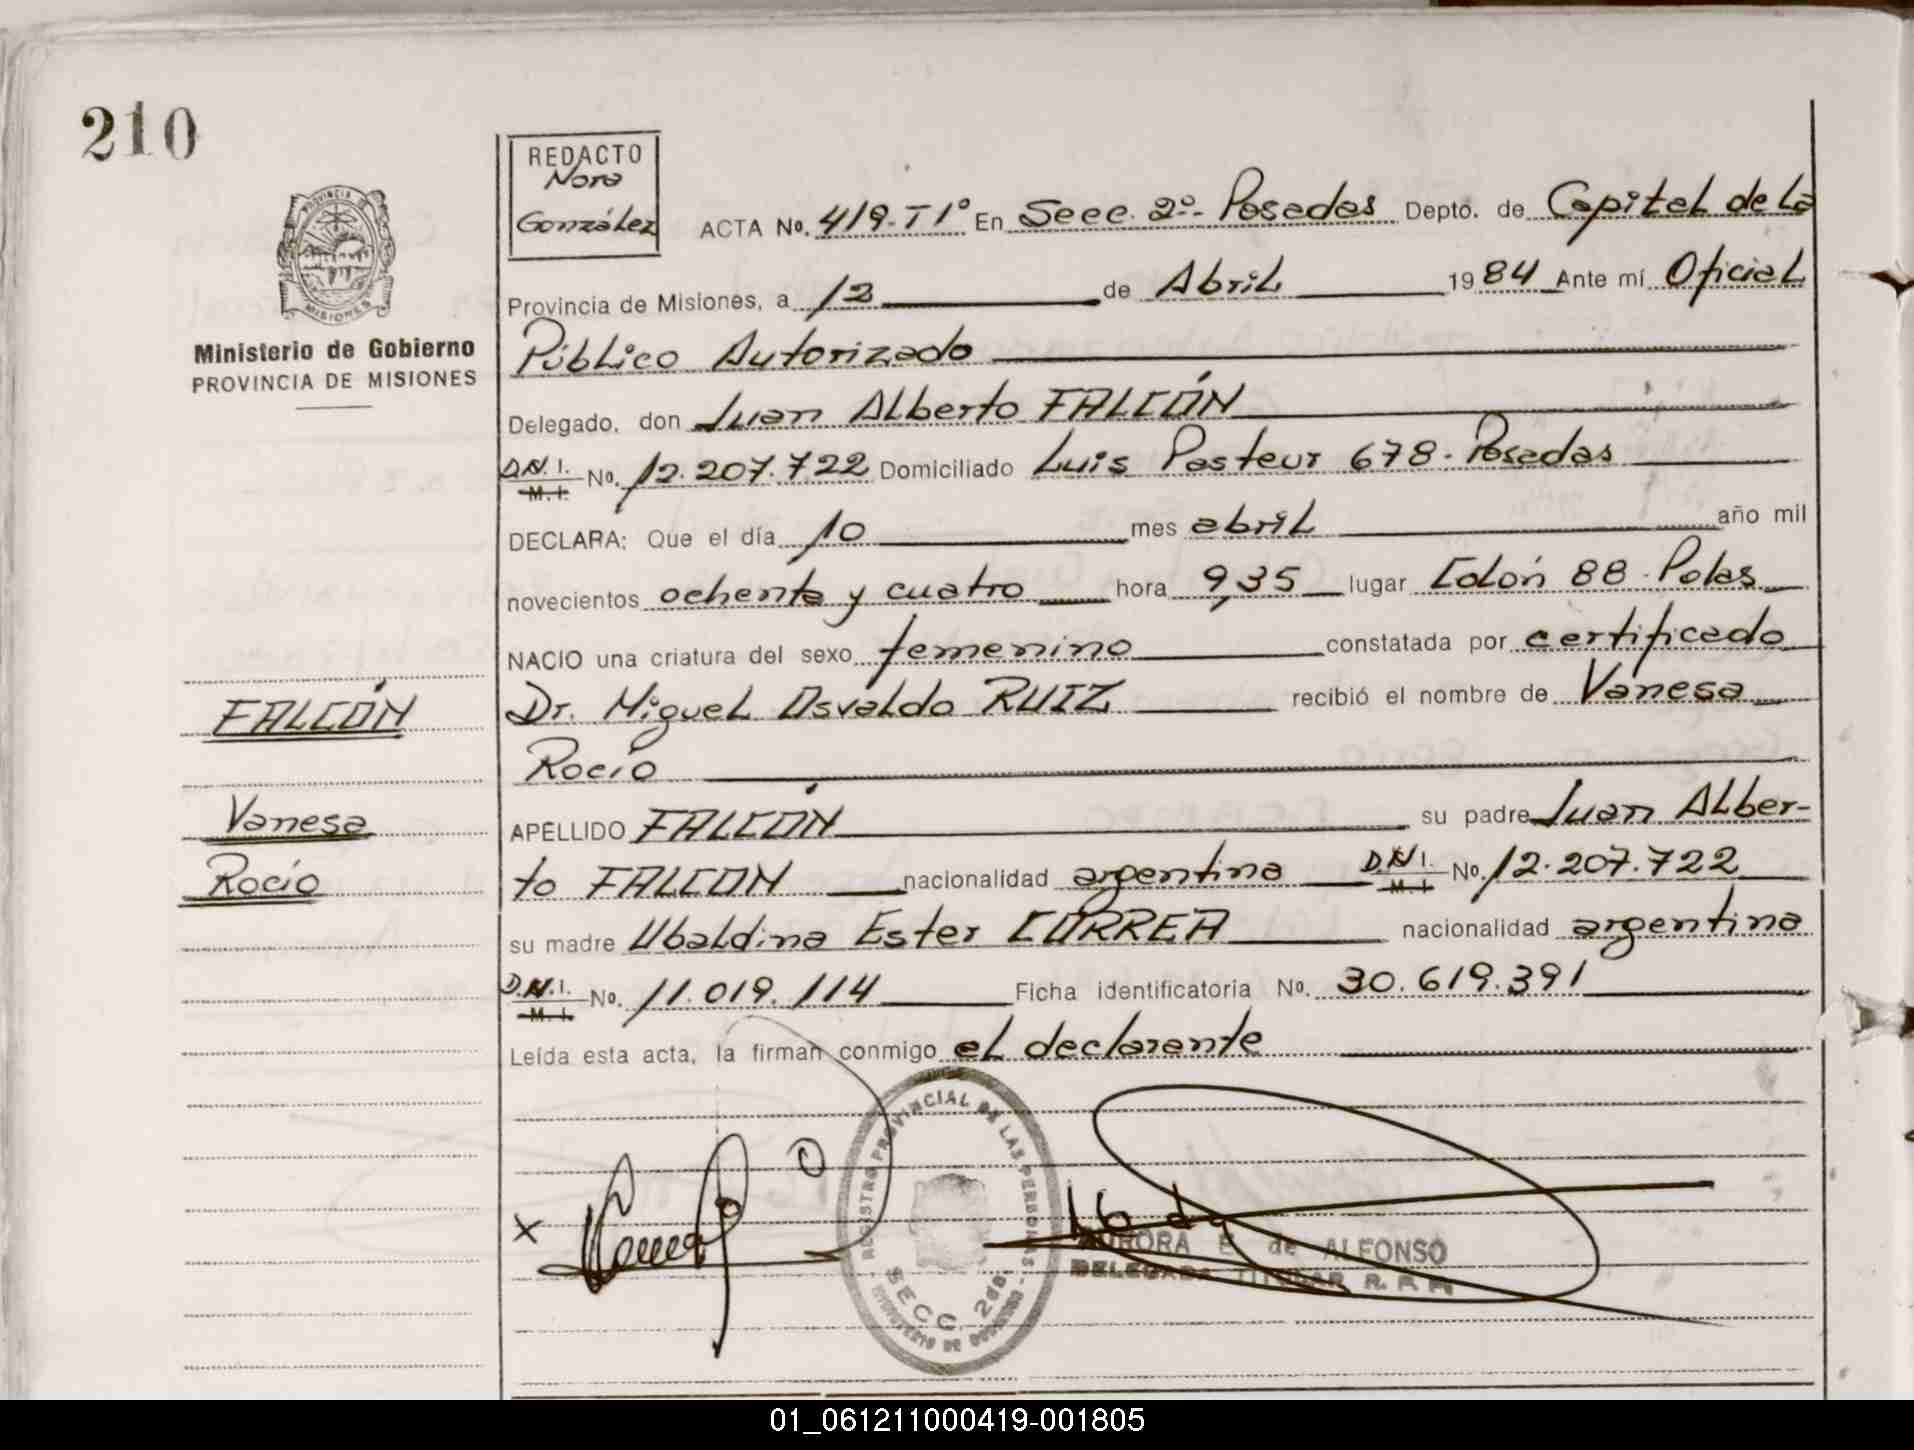 210
REDACTO
Nora
González
ACTA No. 419-T1° En Secc. 2°- Posadas Depto. de Capital de La
Provincia de Misiones, a 12 de Abril 1984 Ante mí Oficial
Público Autorizado
Ministerio de Gobierno
PROVINCIA DE MISIONES
Delegado, don Juan Alberto FALCÓN
D.N.I. M.I. No. 12.207.722 Domiciliado Luis Pasteur 678 - Posadas
DECLARA: Que el día 10 mes abril año mil
novecientos ochenta y cuatro hora 9,35 lugar Colón 88 - Pdas
NACIO una criatura del sexo femenino constatada por certificado
Dr. Miguel Osvaldo RUIZ recibió el nombre de Vanesa
Rocío
FALCÓN
Vanesa
Rocío
APELLIDO FALCÓN su padre Juan Alber-
to FALCON nacionalidad argentina D.N.I. M.I. No. 12.207.722
su madre Ubaldina Ester CORREA nacionalidad argentina
D.N.I. M.I. No. 11.019.114 Ficha identificatoria No. 30.619.391
Leída esta acta, la firman conmigo el declarante
REGISTRO PROVINCIAL DE LAS PERSONAS
SECC. 2da.
MINISTERIO DE GOBIERNO
AURORA E de ALFONSO
DELEGADA TITULAR R. P. P.
01_061211000419-001805